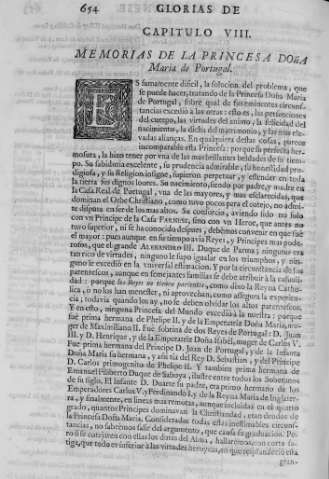 654 GLORIAS DE
CAPITULO VIII.
MEMORIAS DE LA PRINCESA Doña
Maria de Portugal.
ES sumamente dificil, la solucion del problema, que
se puede hazer, tratando de la Princesa Doña Maria
de Portugal, sobre qual de sus eminentes circunstancias
excedió à las otras: esto es, las perfecciones
del cuerpo, las virtudes del animo, la felicidad del
nacimiento, la dicha del matrimonio, y las mas elevadas
alianças. En qualquiera destas cosas, parece
incomparable esta Princesa: porque su perfecta hermosura,
la hizo tener por vna de las mayores beldades de su tiempo.
Su sabiduria excelente, su prudencia admirable, su honestidad prodigiosa,
y su Religion insigne, supieron perpetuar, y estender en toda
la tierra sus dignos loores. Su nacimiento, siendo por padre, y madre en
la Casa Real de Portugal, vna de las mayores, y mas esclarecidas, que
dominan el Orbe Christiano, como tuvo pocos para el cotejo, no admite
disputa en ser de los mas altos. Su consorcio, aviendo sido no solo
con vn Principe de la Casa FARNESE, sino con vn Heroe, que antes no
tuvo superior, ni se ha conocido despues, debemos convenir en que fue
el mayor: pues aunque en su tiempo avia Reyes, y Principes mas poderosos,
que el grande ALEXANDRO III. Duque de Parma, ninguno era
tan rico de virtudes, ninguno le supo igualar en los triunfos, y ninguno
le excedió en la vniversal estimacion. Y por la circunstancia de sus
parentescos, aunque en semejantes familias se debe atribuir à la casualidad:
porque los Reyes no tienen parientes, como dixo la Reyna Catholica,
ò no los han menester, ni aprovechan, como assegura la experiencia;
todavia quando los ay, no se deben olvidar los altos parentescos.
Y en esto, ninguna Princesa del Mundo excedió a la nuestra: porque
fue prima hermana de Phelipe II. y de la Emperatriz Doña Maria, muger
de Maximiliano II. Fue sobrina de dos Reyes de Portugal: D. Juan
III. y D. Henrique, y de la Emperatriz Doña Isabel, muger de Carlos V.
Fue prima hermana del Principe D. Juan de Portugal, y de la Infanta
Doña Maria su hermana, y assi tia del Rey D. Sebastian, y del Principe
D. Carlos primogenito de Phelipe II. Y tambien prima hermana de
Emanuel Filiberto Duque de Saboya, ilustre entre todos los Soberanos
de su siglo. El Infante D. Duarte su padre, era primo hermano de los
Emperadores Carlos V. y Ferdinando I. y de la Reyna Maria de Inglaterra,
y finalmente, en lineas mas remotas, aunque incluidas en el quarto
grado, quantos Principes dominavan la Christiandad, eran deudos de
la Princesa Doña Maria. Consideradas todas estas inestimables circunstancias,
no sabrémos salir del argumento, que causa su graduacion. Pero
si se cotejaren con ellas los dotes del Alma, hallarémos, con corta fatiga,
que todo es inferior à las virtudes heroycas, en que resplandeció esta
gran-